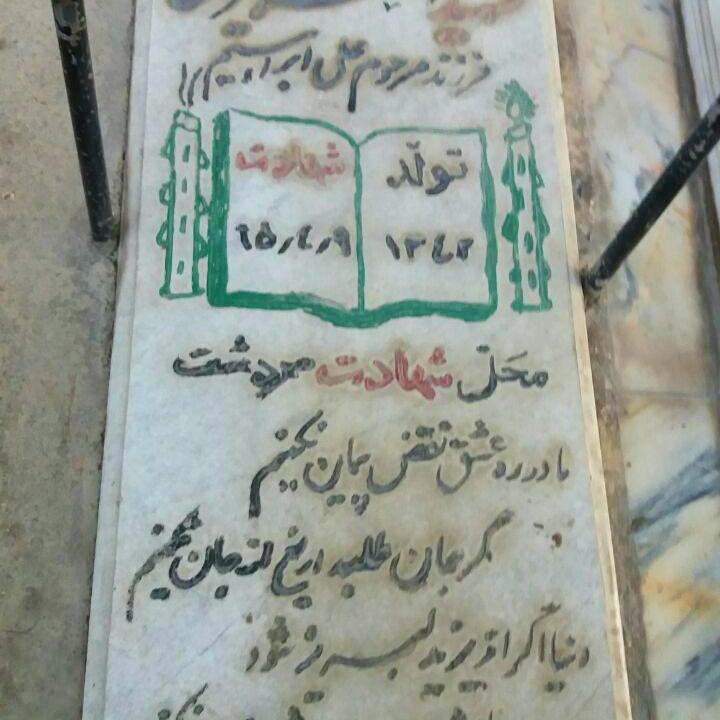 شهید
فرزند مرحوم علی ابراهیم
تولّد شهادت
۱۳۴۲ ۶۵/۴/۹
محلّ شهادت سردشت
ما در ره عشق نقض پیمان نکنیم
گر جان طلبد دریغ از جان نکنیم
دنیا اگر از یزید لبریز شود